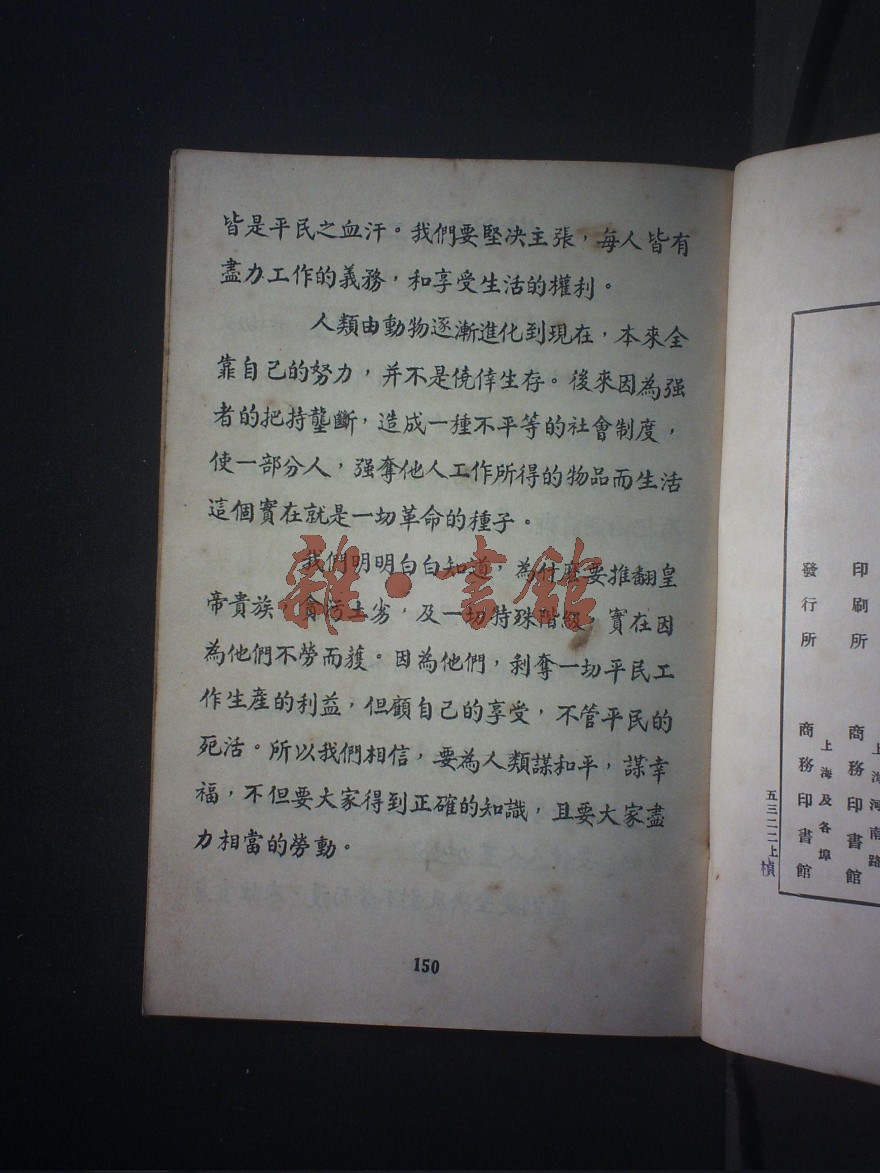 皆是平民之血汗。我們要堅决主張，每人皆有
盡力工作的義務，和享受生活的權利。
人類由動物逐漸進化到現在，本來全
靠自己的努力，并不是僥倖生存。後來因為强
者的把持壟斷，造成一種不平等的社會制度，
使一部分人，强奪他人工作所得的物品而生活
這個實在就是一切革命的種子。
我們明明白白知道，為什麽要推翻皇
帝貴族，貪污土劣，及一切特殊階級，實在因
為他們不勞而獲。因為他們，剥奪一切平民工
作生產的利益，但顧自己的享受，不管平民的
死活。所以我們相信，要為人類謀和平，謀幸
福，不但要大家得到正確的知識，且要大家盡
力相當的勞動。
150
雜·書館
印刷所
上海河南路
商務印書館
發行所
上海及各埠
商務印書館
五三二二上
楨